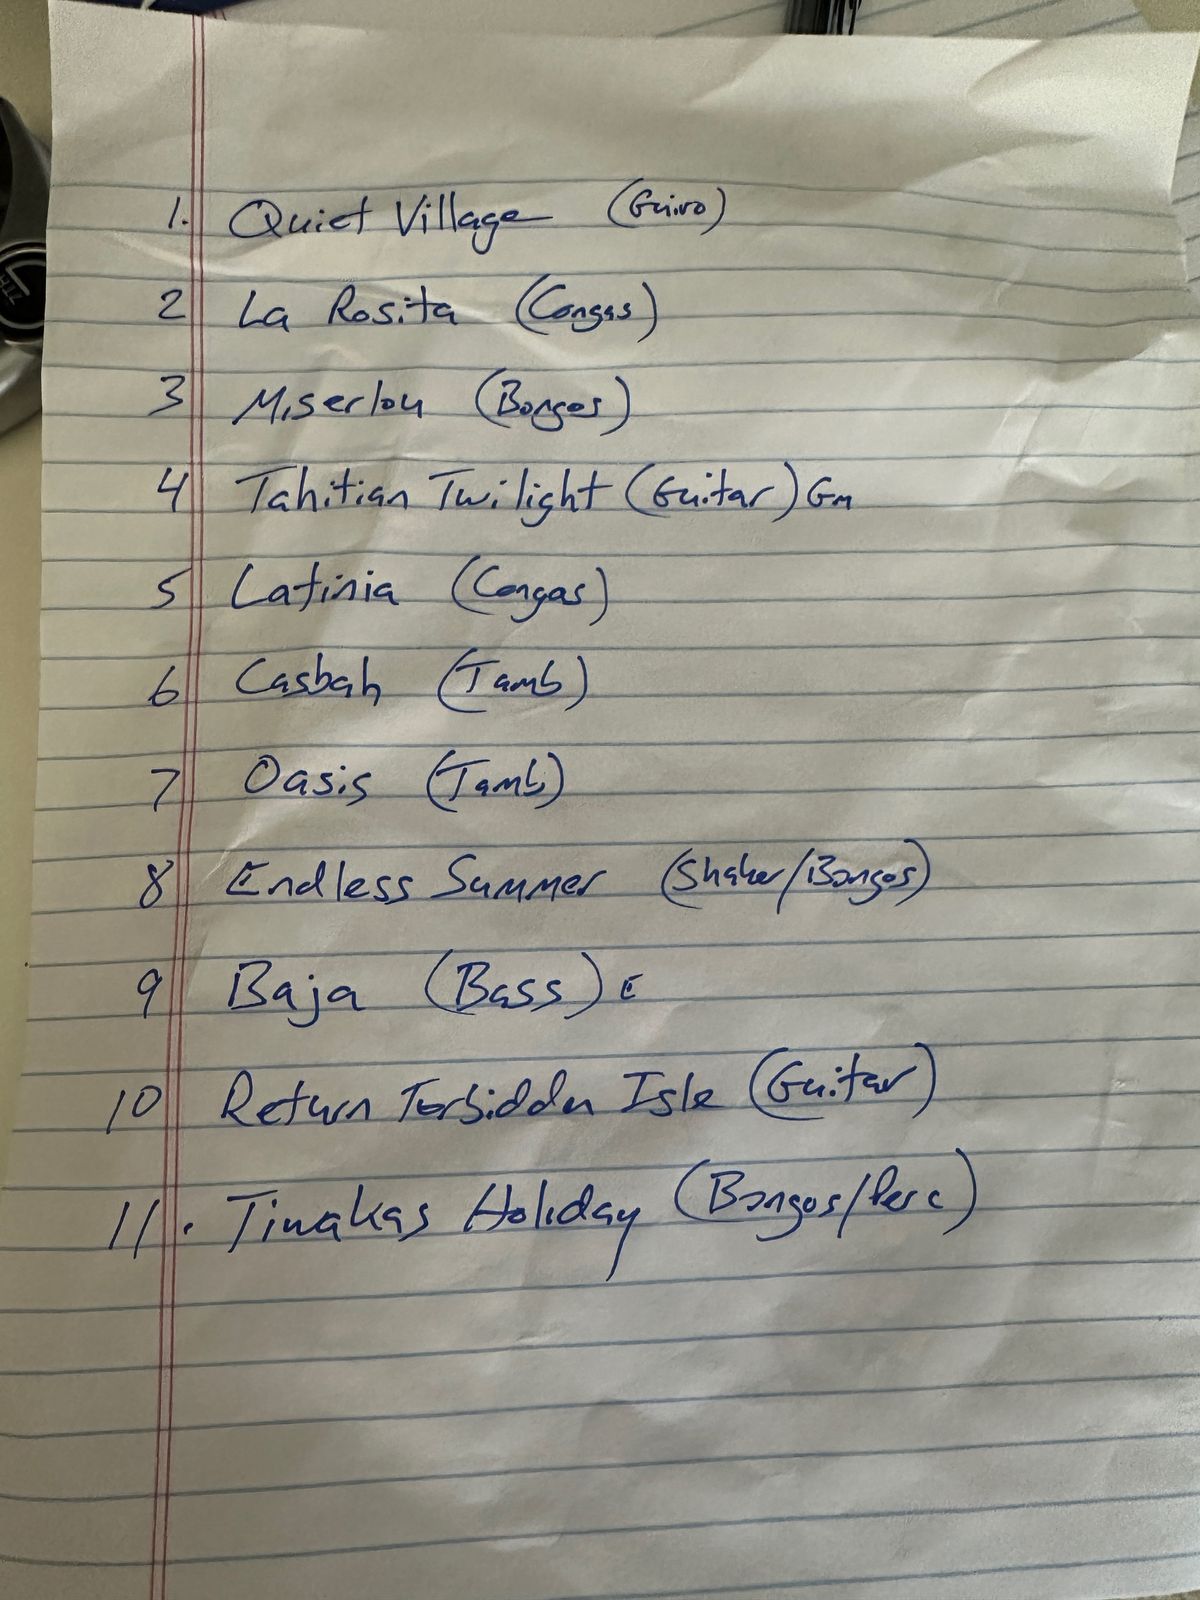 1. Quiet Village (Guiro)
2 La Rosita (Congas)
3 Miserlou (Bongos)
4 Tahitian Twilight (Guitar) Gm
5 Latinia (Congas)
6 Casbah (Tamb)
7 Oasis (Tamb)
8 Endless Summer (Shaker/Bongos)
9 Baja (Bass) E
10 Return Forbidden Isle (Guitar)
11. Tiwakas Holiday (Bongos/Perc)